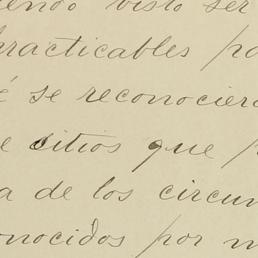 endo visto ser
practicables po
é se reconocier
e sitios que p
a de los circun
onocidos por m